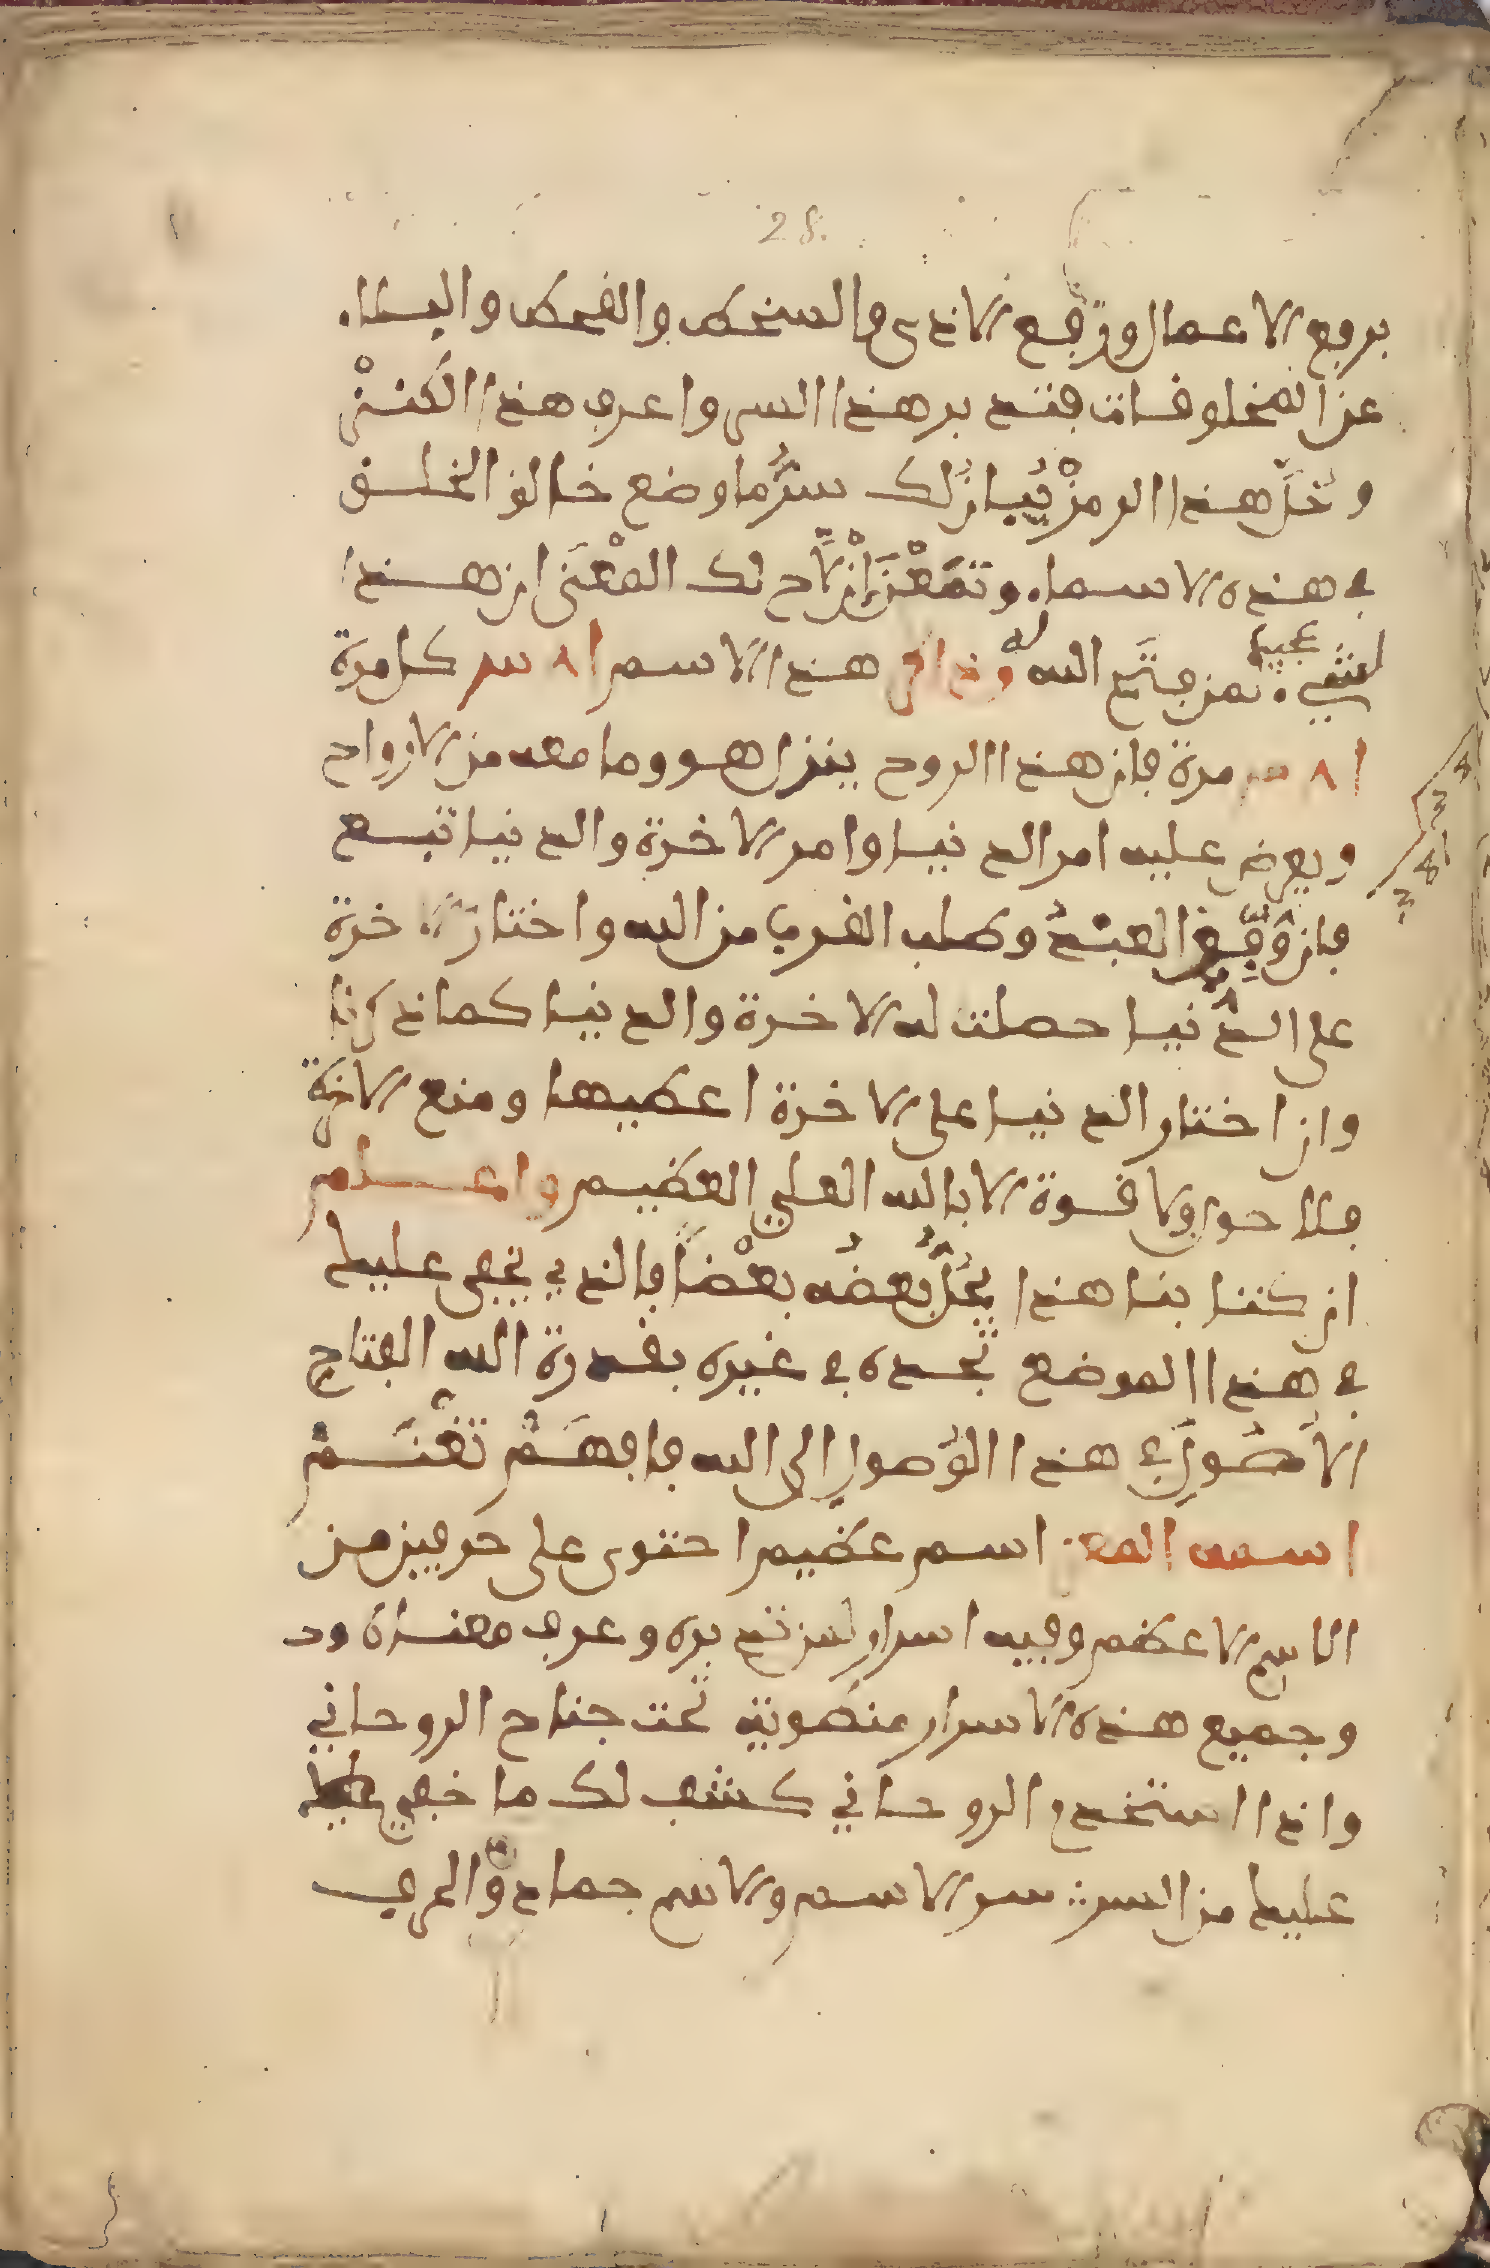 28.
برفع الاعمال وترفع الاذى والسخط والقحط والبلاء
عن المخلوقات فتدبر هذا السر واعرف هذا الكنز
وحل هذا الرمز يبان لك سر ما وضع خالق الخلق
في هذه الاسماء وتمعن ان لاح لك المعنى ان هذا
لشيء عجيب لمن فتح الله له هذا الاسم كل مرة
مرة فان هذا الروح ينزل هو وما معه من الارواح
ويعرض عليه امر الدنيا وامر الاخرة والدنيا تبع
فان وفق العبد وطلب القرب من الله واختار الاخرة
على الدنيا حصلت له الاخرة والدنيا كما ذكرنا
وان اختار الدنيا على الاخرة اعطيها ومنع الاخرة
فلا حول ولا قوة الا بالله العلي العظيم واعلم
ان كتابنا هذا يحل بعضه بعضا فالذي يخفى عليك
في هذا الموضع تجده في غيره بقدرة الله الفتاح
الاصول في هذا الوصول الى الله فافهم تغنم
اسمه اسم عظيم احتوى على حرفين من
الاسم الاعظم وفيه اسرار لمن تدبره وعرف معناه
وجميع هذه الاسرار منطوية تحت جناح الروحاني
واذا استخدم الروحاني كشف لك ما خفي
عليك من السر سر الاسم والاسم جماد والحرف